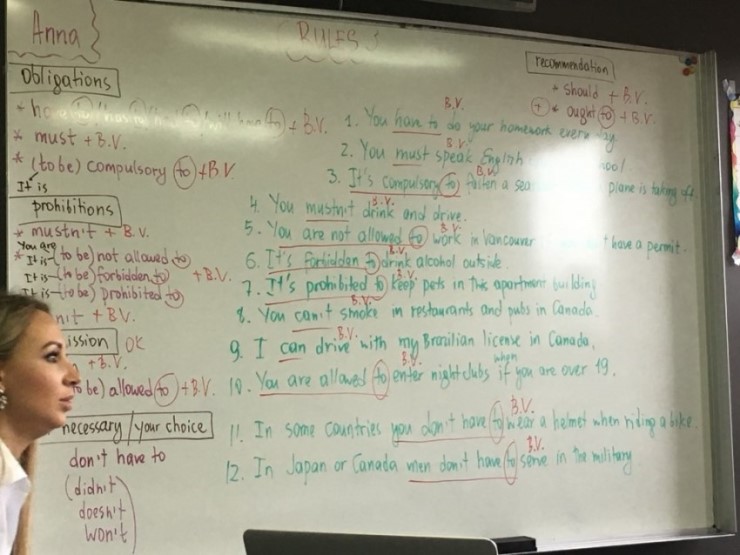 Anna
RULES
obligations
* have to / has to / had to / will have to + B.V.
* must + B.V.
* (to be) compulsory to + B.V.
It is
prohibitions
* mustn't + B.V.
You are
* It is (to be) not allowed to
It is (to be) forbidden to + B.V.
It is (to be) prohibited to
n't + BV.
ission OK
+ B.V.
to be) allowed to + B.V.
necessary / your choice
don't have to
(didn't
doesn't
won't
recommendation
* should + B.V.
+ * ought to + B.V.
B.V.
1. You have to do your homework every day
B.V.
2. You must speak English ool
B.V.
3. It's compulsory to fasten a sea plane is taking off.
B.V.
4. You mustn't drink and drive.
B.V.
5. You are not allowed to work in Vancouver 't have a permit.
B.V.
6. It's forbidden to drink alcohol outside.
B.V.
7. It's prohibited to keep pets in this apartment building
B.V.
8. You can't smoke in restaurants and pubs in Canada.
B.V.
9. I can drive with my Brazilian license in Canada.
B.V. when
10. You are allowed to enter nightclubs if you are over 19.
B.V.
11. In some countries you don't have to wear a helmet when riding a bike.
B.V.
12. In Japan or Canada men don't have to serve in the military